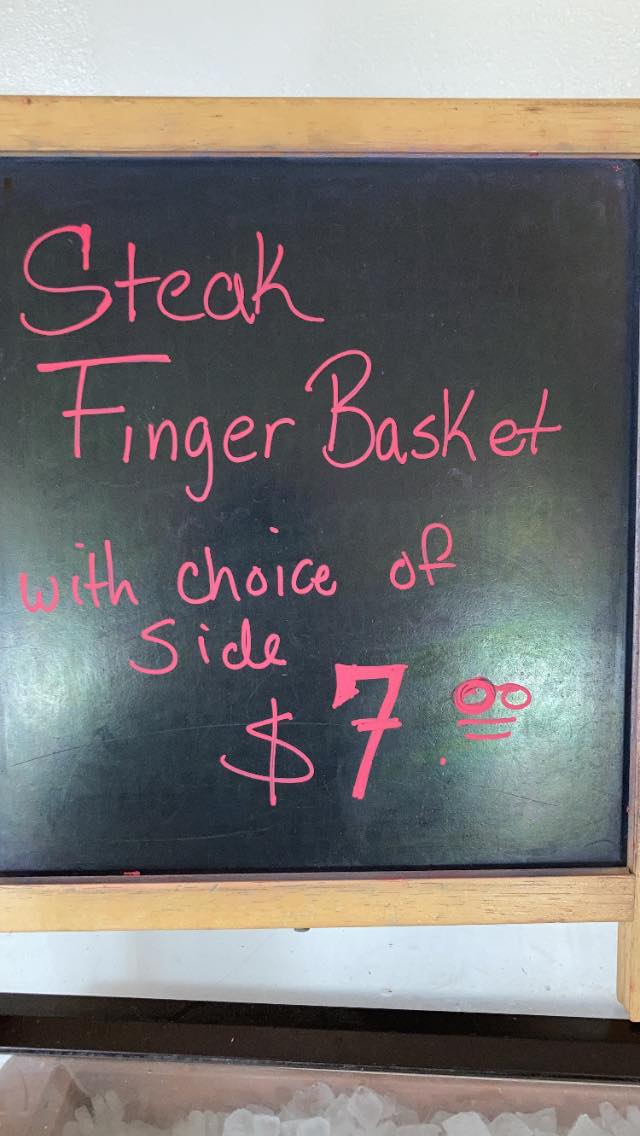 Steak
Finger Basket
with choice of
side
$7.00